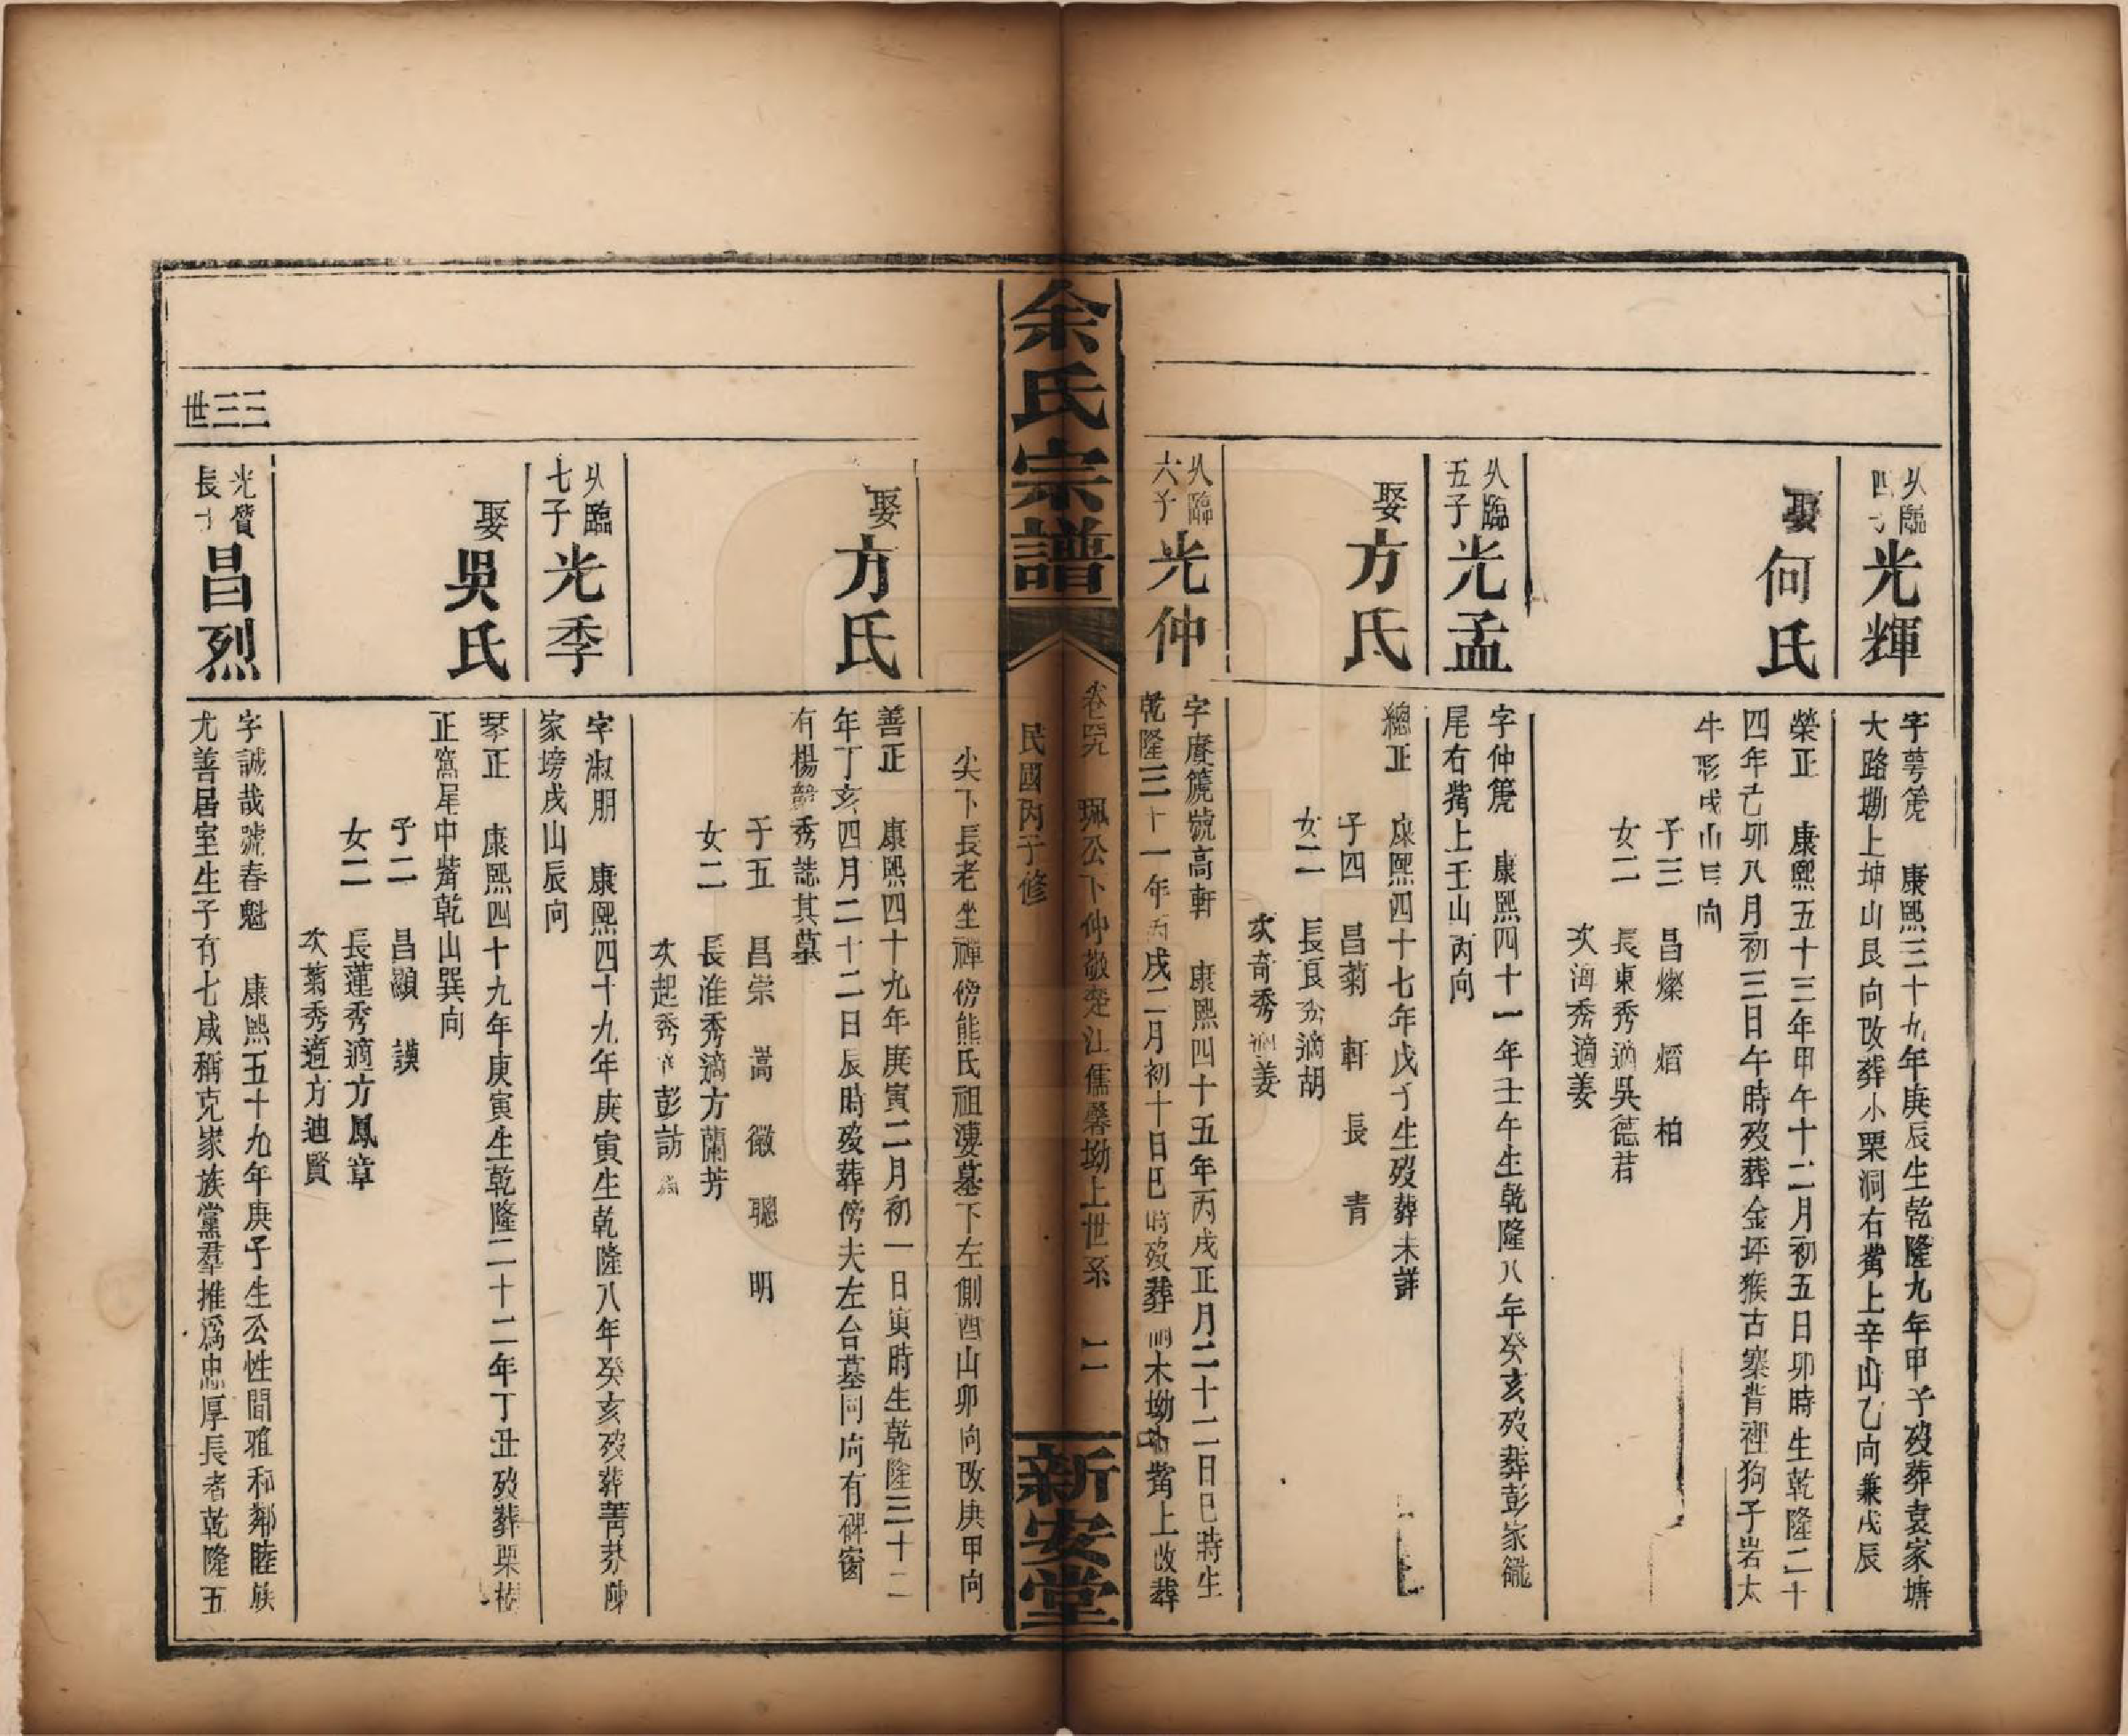 乆臨
四子
光輝
字萼箎　康熙三十九年庚辰生乾隆九年甲子歿葬袁家塘
大路墈上坤山艮向改葬小栗洞右嘴上辛山乙向兼戌辰
娶
何氏
榮正　康熙五十三年甲午十二月初五日卯時生乾隆二十
四年己卯八月初三日午時歿葬金坪猴古寨背裡狗子岩太
牛形戌山向
子三　昌燦　熠　柏
女二　長東秀適吳德君
次海秀適姜
乆臨
五子
光孟
字仲箎　康熙四十一年壬午生乾隆八年癸亥歿葬彭家
尾右嘴上壬山丙向
娶
方氏
總正　康熙四十七年戊子生歿葬未詳
子四　昌菊　軒　長　青
女二　長良秀適胡
次奇秀適姜
乆臨
六子
光仲
字賡箎號高軒　康熙四十五年丙戌正月二十二日巳時生
乾隆三十一年丙戌二月初十日巳時歿葬木坳嘴上改葬
余氏宗譜
卷　珮公下仲敬楚江儒馨坳上世系　二
民國丙子修
新安堂
尖下長老坐禪傍熊氏祖漊墓下左側酉山卯向改庚甲向
娶
方氏
善正　康熙四十九年庚寅二月初一日寅時生乾隆三十二
年丁亥四月二十二日辰時歿葬傍夫左台墓同向有碑窗
有楊韻秀誌其墓
子五　昌崇　嵩　徽　聰　明
女二　長淮秀適方蘭芳
次起秀適彭訪
乆臨
七子
光季
字淑朋　康熙四十九年庚寅生乾隆八年癸亥歿葬菁莽陳
家塝戌山辰向
娶
吳氏
琴正　康熙四十九年庚寅生乾隆二十二年丁丑歿葬栗樹
正窩星中嘴乾山巽向
子二　昌顯　謨
女二　長蓮秀適方鳳章
次菊秀適方迪賢
三三世
光贊
長子
昌烈
字誠哉號春魁　康熙五十九年庚子生公性閒雅和鄰睦族
尤善居室生子有七咸稱克家族黨羣推爲忠厚長者乾隆五